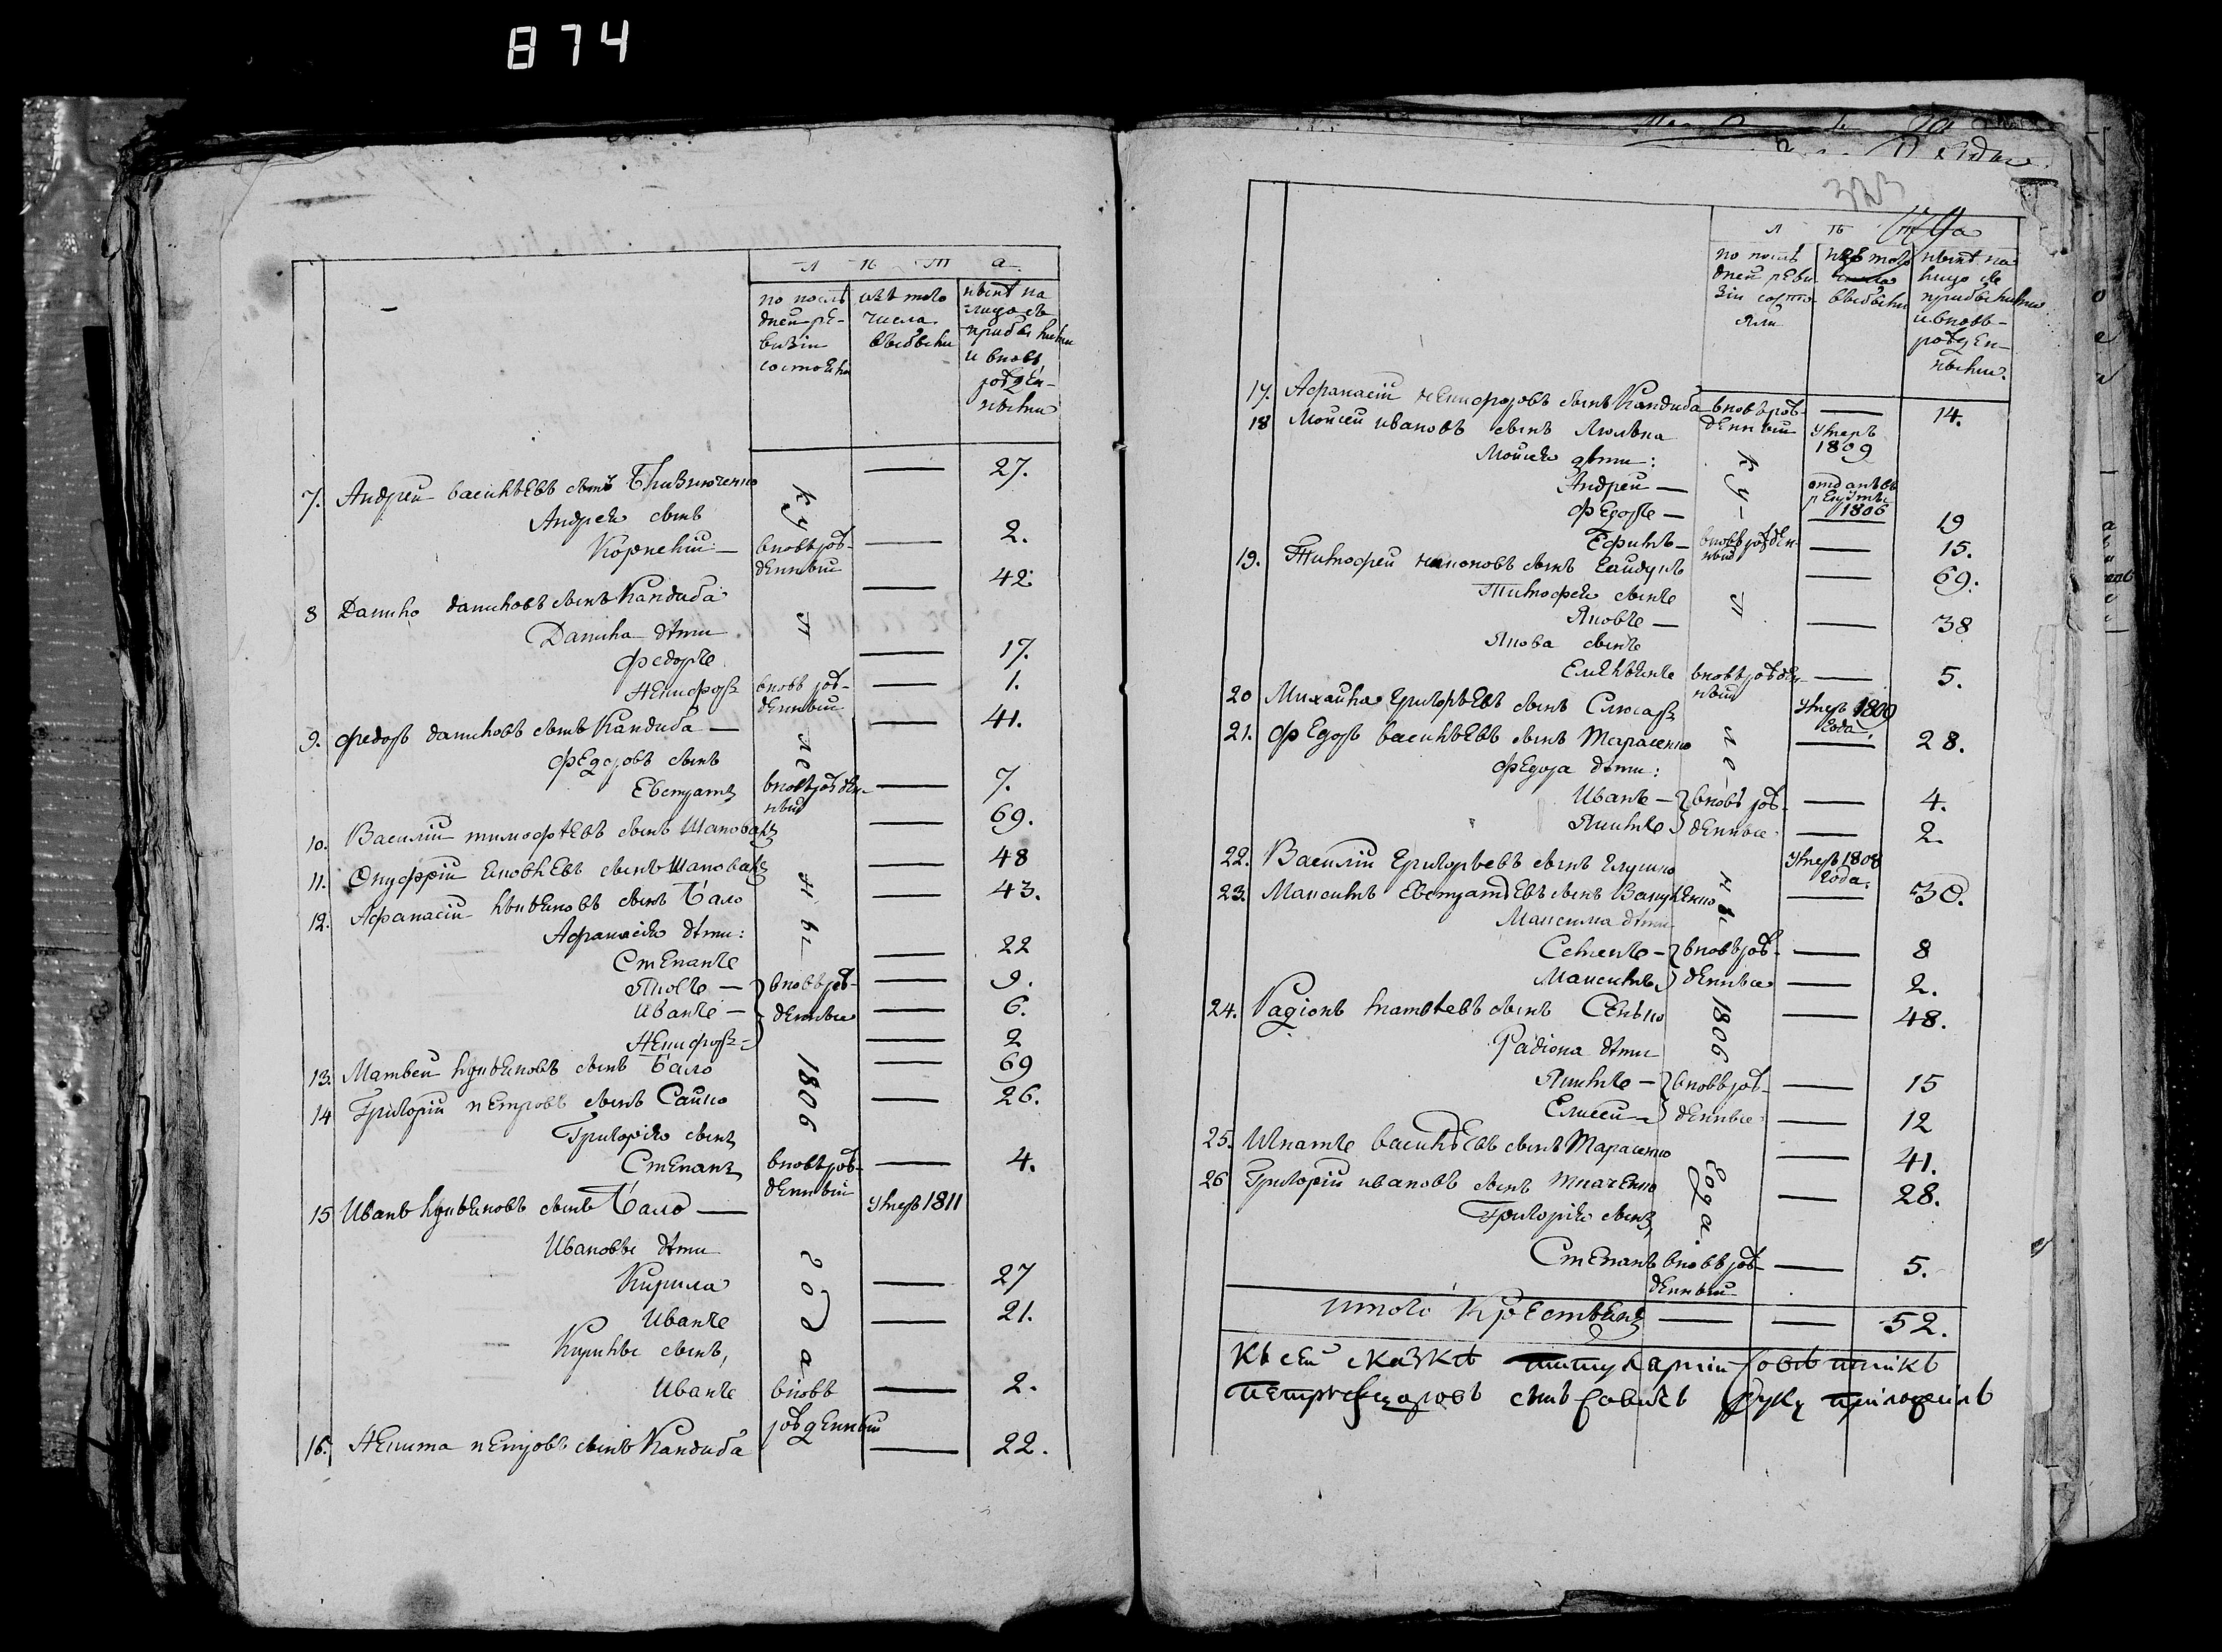 874
Л ѣ т а
по послѣ
дней ре-
визіи
состояли
изъ того
числа
выбыли
нынѣ на
лицо съ
прибылыми
и вновь
рожден-
ными
7. Андрей васильевъ сынъ Близнюченко — 27.
Андрея сынъ
Корнелій — вновь рож-
денный — 2.
8 Данило даниловъ сынъ Кандиба — 42.
Данила дѣти
Федоръ — 17.
Никифоръ вновь рож-
денный — 1.
9. Федоръ даниловъ сынъ Кандиба — 41.
Федоровъ сынъ
Евстратъ вновь рожден-
ный — 7.
10. Василій тимофѣевъ сынъ Шаповалъ — 69.
11. Онуфрій яковлевъ сынъ Шаповалъ — 48
12. Афанасій сынъ Бало — 43.
Афанасія дѣти:
Степанъ — 22
Яковъ — вновь рож- — 9.
Иванъ — денные — 6.
Никифоръ — 2
13. Матвей сынъ Бало — 69
14 Григорій петровъ сынъ Сайко — 26.
Григорія сынъ
Степанъ вновь рож-
денный — 4.
15 Иванъ сынъ Бало — умеръ 1811
Ивановы дѣти
Кирила — 27
Иванъ — 21.
Кирилы сынъ,
Иванъ вновь
рожденный — 2.
16. Никита петровъ сынъ Кандиба — 22.
купленные 1806 года
Л ѣ та
по послѣ
дней реви
зіи состо
яли
изъ того
числа
выбыли
нынѣ на
лицо съ
прибылыми
и вновь-
рожден-
ными.
17. Афанасій никифоровъ сынъ Кандиба вновь рож-
денный — 14.
18 Мойсей ивановъ сынъ Люлька умеръ
1809
Мойсея дѣти:
Андрей — отданъ въ
рекруты
1806
Федоръ — 19
Ефимъ — вновь рожден-
ный — 15.
19. Тимофей сынъ Гайдукъ — 69.
Тимофея сынъ
Яковъ — 38
Якова сынъ
Емельянъ вновь рожден-
ный — 5.
20 Михайла григорьевъ сынъ Слюсаръ умеръ 1809
года.
21. Федоръ васильевъ сынъ Тарасенко — 28.
Федора дѣти:
Иванъ — вновь рож- — 4.
Якимъ денные — 2.
22. Василій григорьевъ сынъ Глушко умеръ 1808
года.
23. Максимъ Евстратѣевъ сынъ — 30.
Максима дѣти
Семенъ — вновь рож- — 8
Максимъ денные — 2.
24. Радіонъ сынъ Сенько — 48.
Радіона дѣти
Якимъ — вновь рож- — 15
Елисей — денные — 12
25. Игнатъ васильевъ сынъ Тарасенко — 41.
26 Григорій ивановъ сынъ Ткаченко — 28.
Григорія сынъ,
Степанъ вновь рож-
денный — 5.
купленные 1806 года.
итого Крестьянъ — — 52.
Къ сей сказкѣ титулярный совѣтникъ
петръ сынъ савичъ руку приложилъ